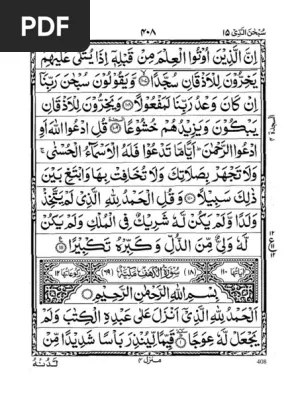 PDF
سُبْحٰنَ الَّذِیْۤ ۱۵
۴۰۸
اِنَّ الَّذِیْنَ اُوْتُوا الْعِلْمَ مِنْ قَبْلِهٖۤ اِذَا یُتْلٰی عَلَیْهِمْ
یَخِرُّوْنَ لِلْاَذْقَانِ سُجَّدًا ۙ وَّیَقُوْلُوْنَ سُبْحٰنَ رَبِّنَاۤ
اِنْ كَانَ وَعْدُ رَبِّنَا لَمَفْعُوْلًا وَیَخِرُّوْنَ لِلْاَذْقَانِ
یَبْكُوْنَ وَیَزِیْدُهُمْ خُشُوْعًا قُلِ ادْعُوا اللّٰهَ اَوِ
ادْعُوا الرَّحْمٰنَ ؕ اَیًّا مَّا تَدْعُوْا فَلَهُ الْاَسْمَآءُ الْحُسْنٰی ۚ
وَلَا تَجْهَرْ بِصَلَاتِكَ وَلَا تُخَافِتْ بِهَا وَابْتَغِ بَیْنَ
ذٰلِكَ سَبِیْلًا وَقُلِ الْحَمْدُ لِلّٰهِ الَّذِیْ لَمْ یَتَّخِذْ
وَلَدًا وَّلَمْ یَكُنْ لَّهٗ شَرِیْكٌ فِی الْمُلْكِ وَلَمْ یَكُنْ
لَّهٗ وَلِیٌّ مِّنَ الذُّلِّ وَكَبِّرْهُ تَكْبِیْرًا
اٰیَاتُهَا ۱۱۰ (۱۸) سُوْرَةُ الْكَهْفِ مَكِّیَّةٌ (۶۹) رُكُوْعَاتُهَا ۱۲
بِسْمِ اللّٰهِ الرَّحْمٰنِ الرَّحِیْمِ
اَلْحَمْدُ لِلّٰهِ الَّذِیْۤ اَنْزَلَ عَلٰی عَبْدِهِ الْكِتٰبَ وَلَمْ
یَجْعَلْ لَّهٗ عِوَجًا قَیِّمًا لِّیُنْذِرَ بَاْسًا شَدِیْدًا مِّنْ
لَّدُنْهُ
منزل ۴
408
السجدة
ع
۱۲